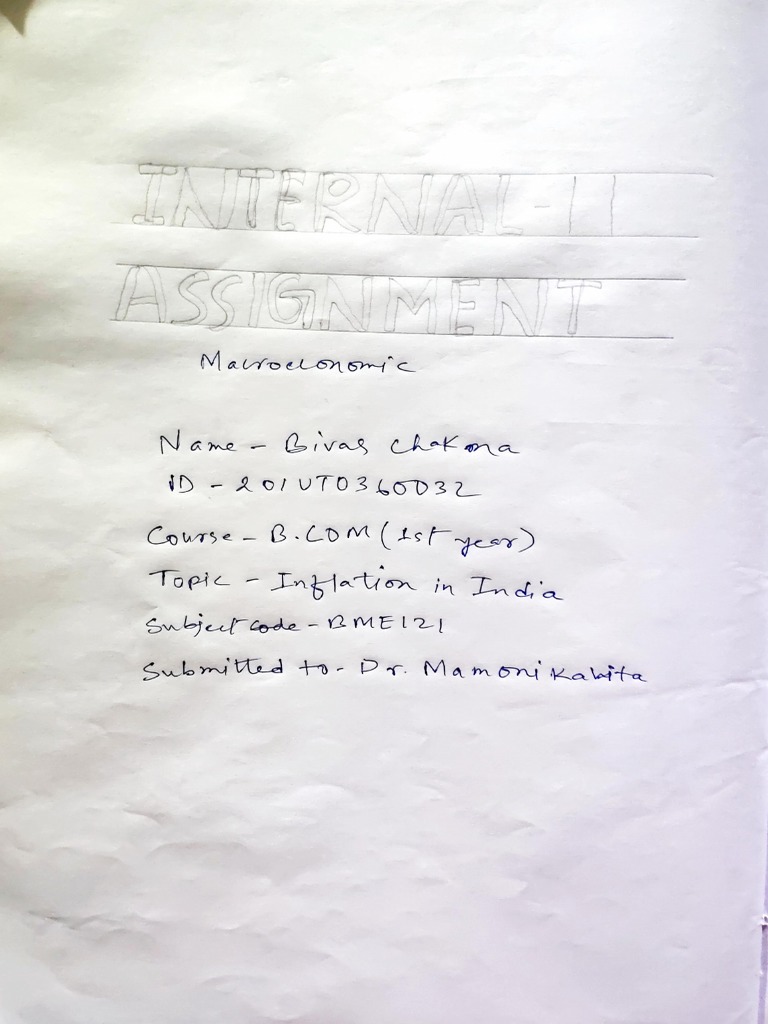 INTERNAL-II
ASSIGNMENT
Macroeconomic
Name - Bivas Chakma
ID - 201UT0360032
Course - B.COM (1st year)
Topic - Inflation in India
Subject code - BME121
Submitted to - Dr. Mamoni Kalita